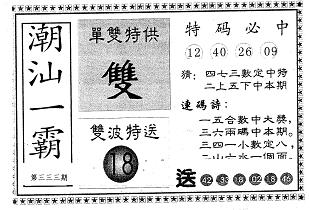 潮汕一霸
第三三三期
單雙特供
雙
雙波特送
18
特码必中
12 40 26 09
猜：四七三數定中特
二上五下中本期
連碼詩：
一五合數中大獎，
三六兩碼中本期。
三四一小數定八，
二山六水一個面。
送 42 33 18 02 18 46